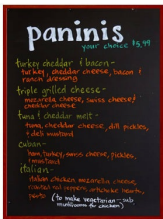 paninis
your choice $5.99
turkey cheddar + bacon-
turkey, cheddar cheese, bacon +
ranch dressing
triple grilled cheese-
mozzarella cheese, swiss cheese,
cheddar cheese
tuna + cheddar melt-
tuna, cheddar cheese, dill pickles,
+ deli mustard
cuban-
ham, turkey, swiss cheese, pickles,
+ mustard
italian-
italian chicken, mozzarella cheese,
roasted red peppers, artichoke hearts,
pesto (to make vegetarian - sub
mushrooms for chicken)